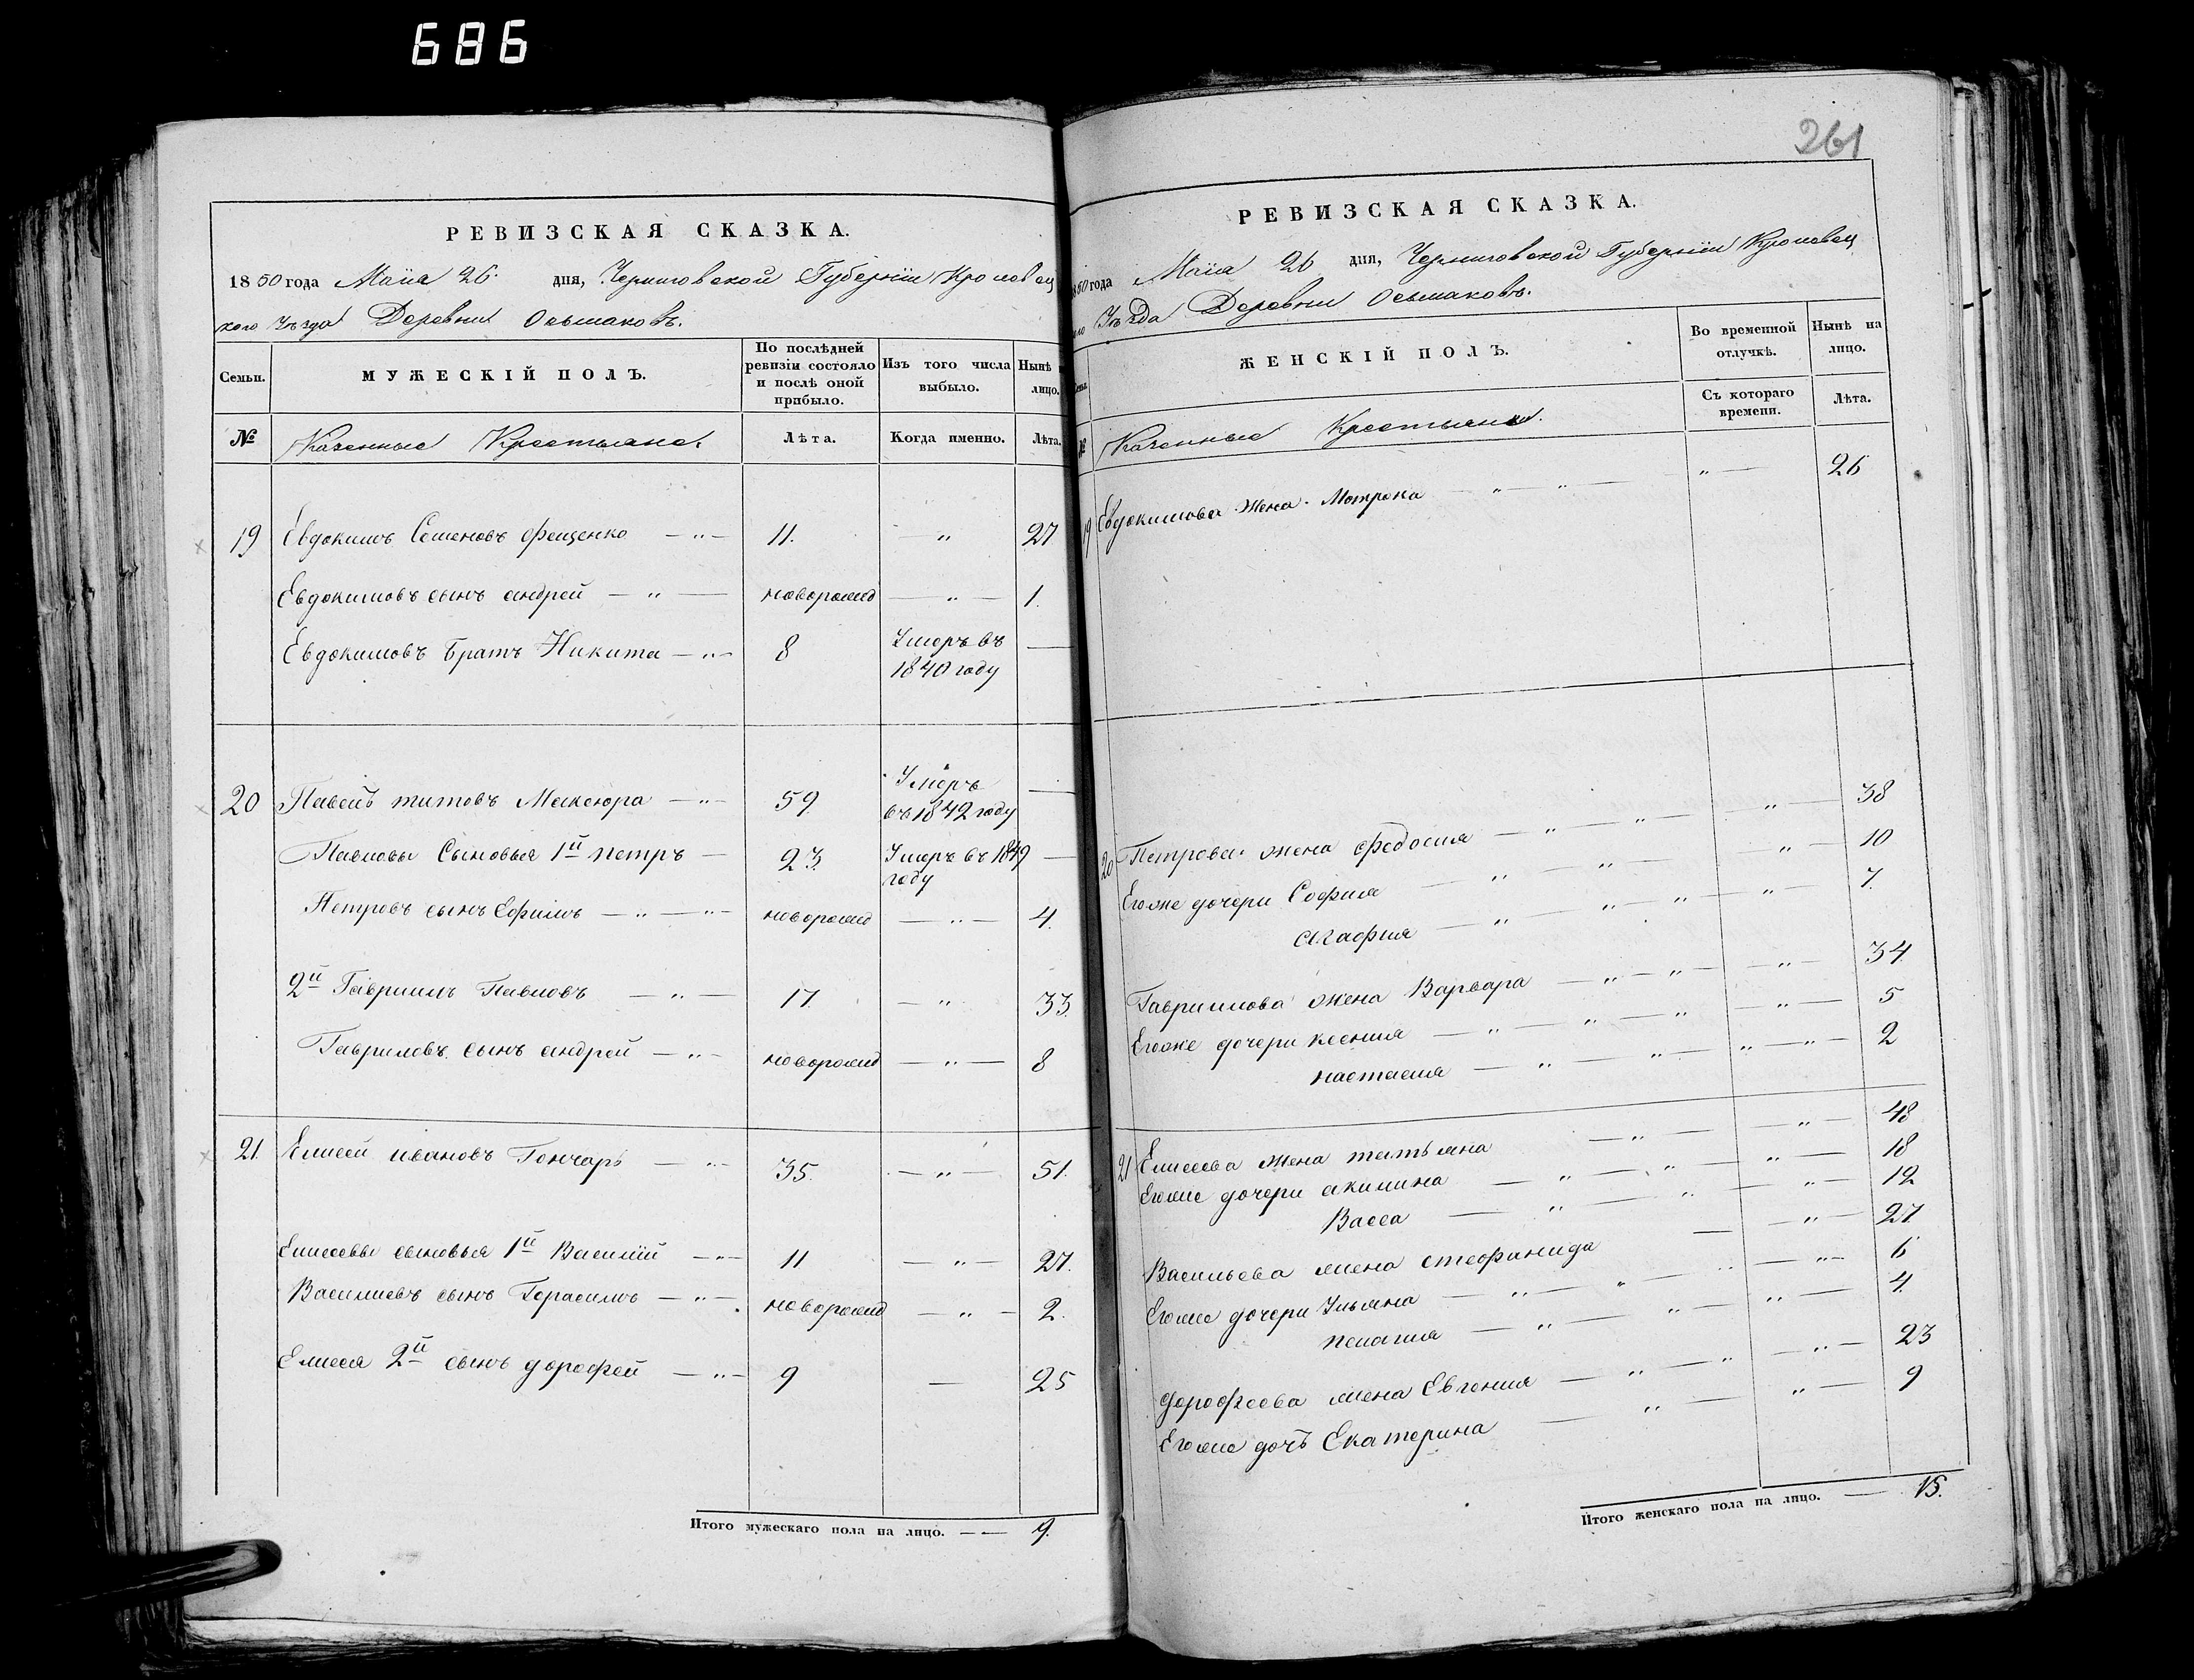 686
РЕВИЗСКАЯ СКАЗКА.
1850 года Маiя 26. дня, Черниговской Губернiи Кролевец
кого Уѣзда Деревни Осьмаковъ.
Семьи. МУЖЕСКIЙ ПОЛЪ. По послѣдней ревизiи состояло и послѣ оной прибыло. Изъ того числа выбыло. Нынѣ лицо.
№ Казенные Крестьяне. Лѣта. Когда именно. Лѣта.
19 Евдокимъ Семеновъ Фещенко — " — 11. — " 27
Евдокимовъ сынъ андрей — " — новорожд — " — 1.
Евдокимовъ Братъ Никита — " — 8 Умеръ въ —
1840 году
20 Павелъ титовъ Максюра — " — 59. Умеръ —
въ 1842 году
Павловы Сыновья 1й петръ — 23. Умеръ въ 1849 —
году
Петровъ сынъ Ефимъ — " — " — новорожд — " — 4.
2й Гаврiилъ Павловъ — " — 17. — " 33.
Гавриловъ сынъ андрей — " — новорожд — " — 8
21. Елисей ивановъ Гончаръ — " — 35. — " — 51.
Елисеевы сыновья 1й Василiй — " — 11 — " — 27.
Василиевъ сынъ Герасимъ — " — новорожд — " — 2.
Елисея 2й сынъ дорофей — " — 9 — 25
Итого мужескаго пола на лицо. — — 9.
261
РЕВИЗСКАЯ СКАЗКА.
1850 года Маiя 26 дня, Черниговской Губернiи Кролевец
Уѣзда Деревни Осьмаковъ.
ЖЕНСКIЙ ПОЛЪ. Во временной отлучкѣ. Нынѣ на лицо.
Съ котораго времени. Лѣта.
№ Казенные Крестьяне.
19 Евдокимова жена Мотрона — " — " — " — 26
20 Петрова жена Федосия — " — " — " — 38
Егоже дочери София — " — " — " — 10
агафия — " — " — " — " — 7.
Гавриилова жена Варвара — " — " — " — 34
Егоже дочери ксения — " — " — " — " — 5
настасия — " — " — " — " — 2
21 Елисеева жена татьяна — " — " — 48
Егоже дочери акилина — " — " — " — 18
Васса — " — " — " — 12
Васильева жена стефанида — " — 27
Егоже дочери Ульяна — " — " — " — 6
пелагия — " — " — " — 4.
дорофеева жена Евгения — " — " — " — 23
Егоже дочь Екатерина — " — " — 9
Итого женскаго пола на лицо. — 15.